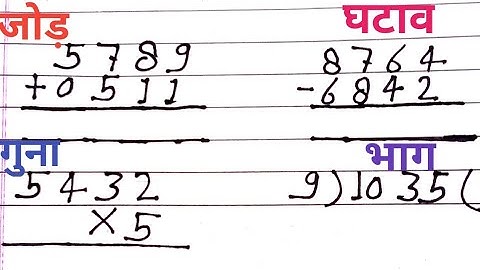 जोड़
5789
+0511
घटाव
8764
-6842
गुना
5432
×5
भाग
9)1035(